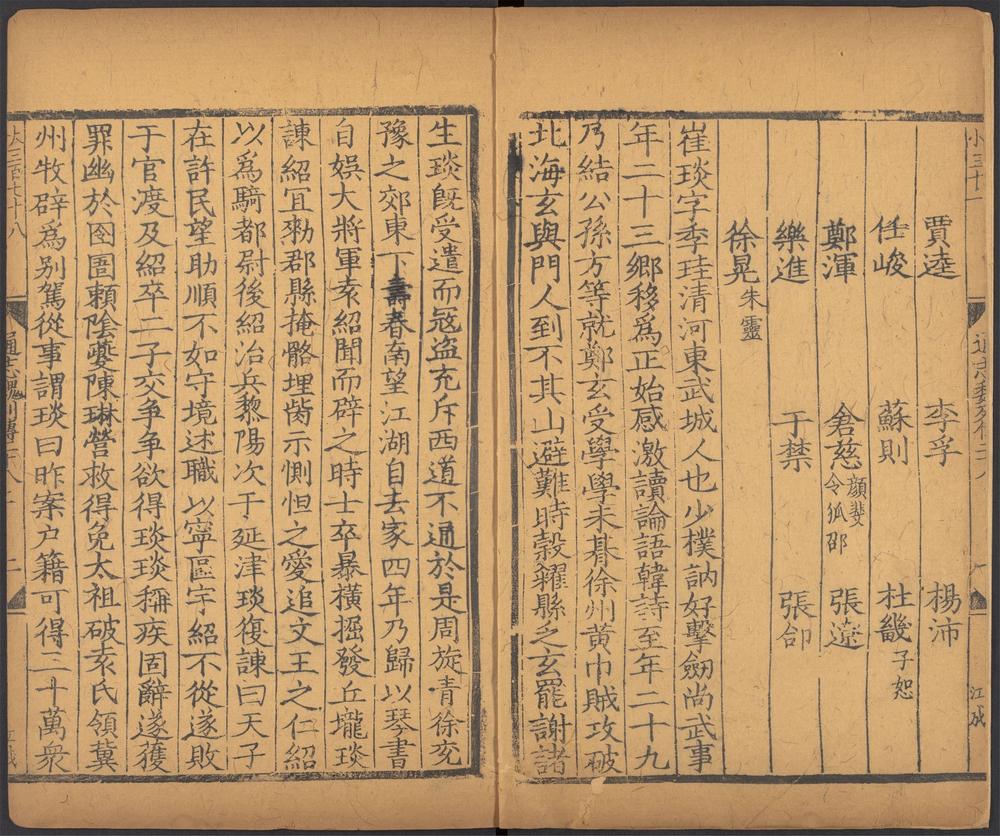 賈逵 李孚 楊沛
任峻 蘇則 杜畿子恕
鄭渾 倉慈顔斐令狐邵 張遼
樂進 于禁 張郃
徐晃朱靈
崔琰字季珪清河東武城人也少樸訥好擊劒尚武事
年二十三鄉移爲正始感激讀論語韓詩至年二十九
乃結公孫方等就鄭玄受學學未朞徐州黄巾賊攻破
北海玄與門人到不其山避難時穀糴縣乏玄罷謝諸
生琰旣受遣而宼盗充斥西道不通於是周旋青徐兖
豫之郊東下壽春南望江湖自去家四年乃歸以琴書
自娱大將軍袁紹聞而辟之時士卒暴横掘發丘壠琰
諌紹冝勑郡縣掩骼埋胔示惻怛之愛追文王之仁紹
以爲騎都尉後紹治兵黎陽次于延津琰復諌曰天子
在許民望助順不如守境述職以寧區宇紹不從遂敗
于官渡及紹卒二子交争争欲得琰琰稱疾固辭遂獲
罪幽於囹圄賴陰夔陳琳營救得免太祖破袁氏領冀
州牧辟爲别駕從事謂琰曰昨案户籍可得三十萬衆
江成